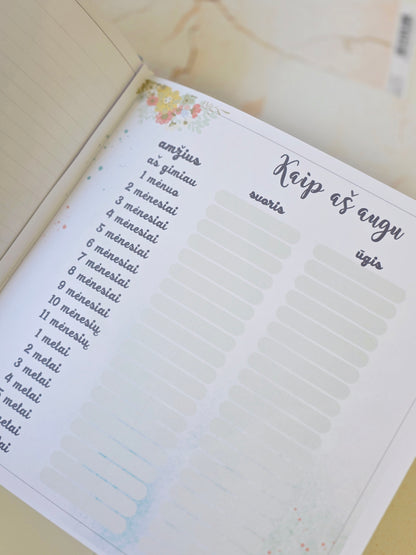 Kaip aš augu
amžius
svoris
ūgis
aš gimiau
1 mėnuo
2 mėnesiai
3 mėnesiai
4 mėnesiai
5 mėnesiai
6 mėnesiai
7 mėnesiai
8 mėnesiai
9 mėnesiai
10 mėnesių
11 mėnesių
1 metai
2 metai
3 metai
4 metai
5 metai